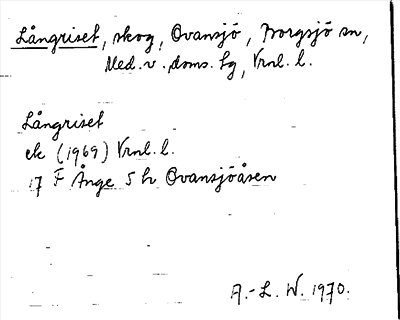 Långriset, skog, Ovansjö, Borgsjö sn,
Med. v. doms. tg, Vrnl. l.
Långriset
ek (1969) Vrnl. l.
17 F Ånge 5 h Ovansjöåsen
A.-L. W. 1970.